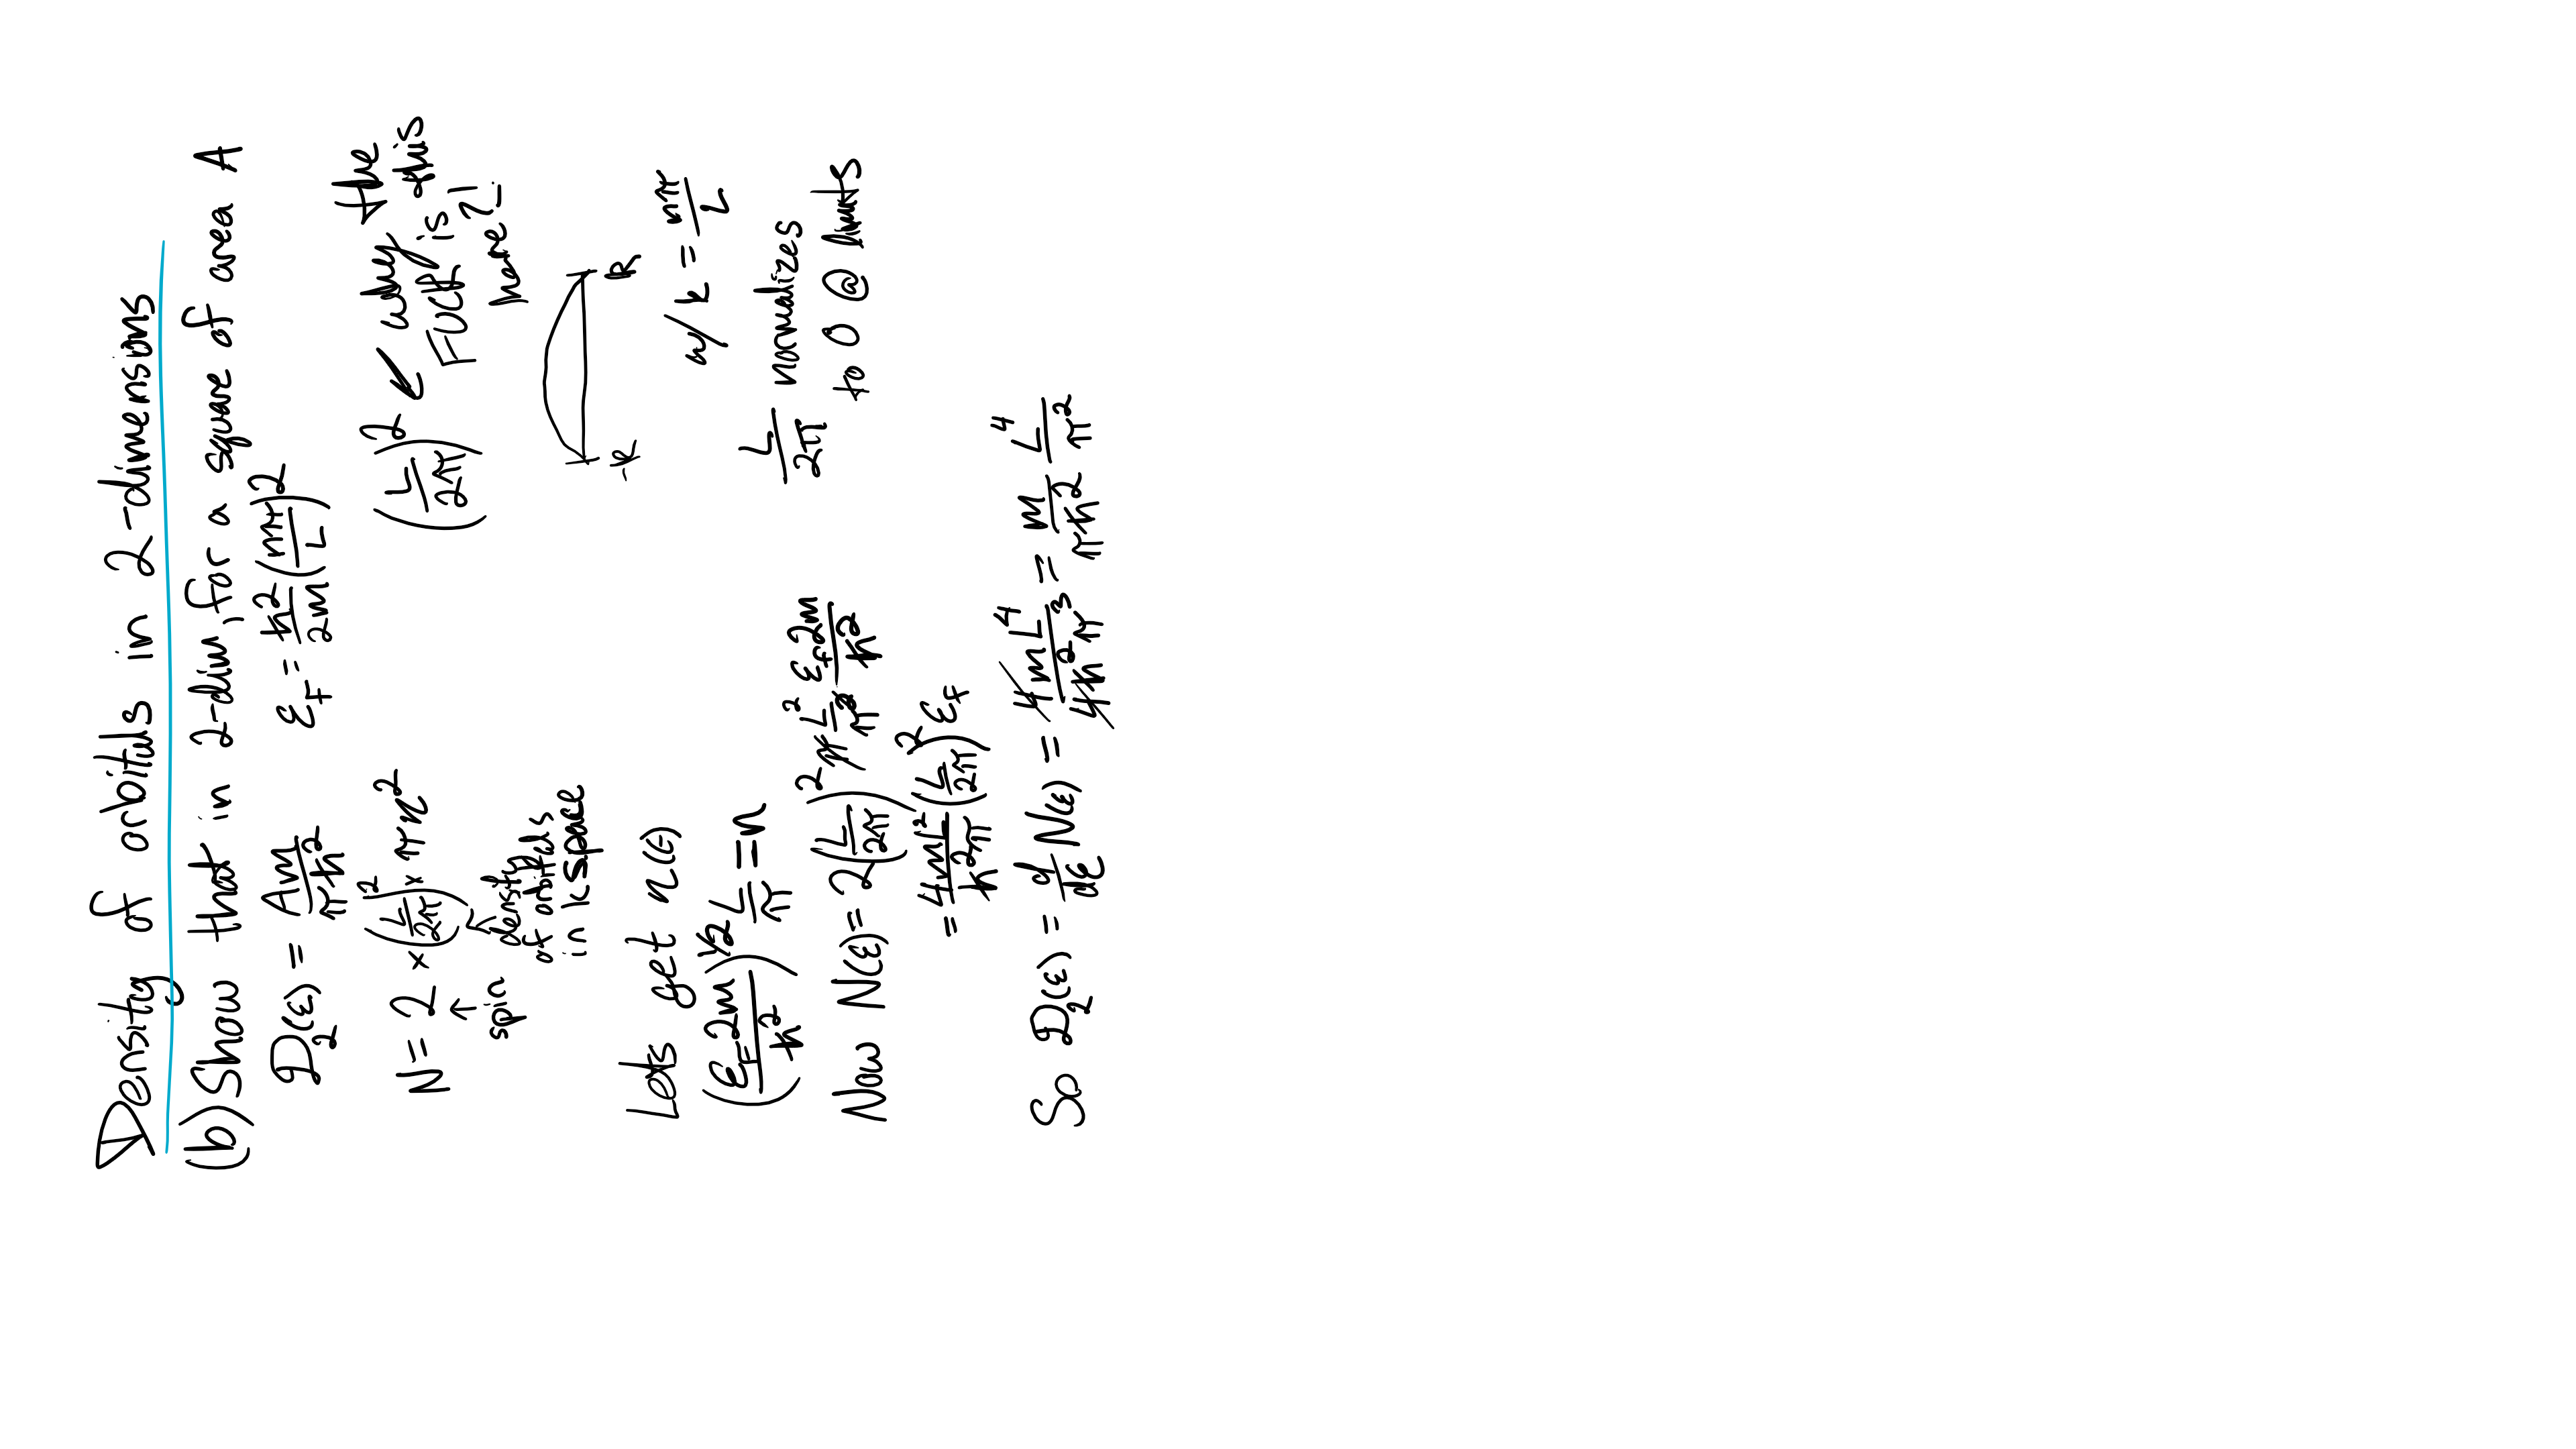 Density of orbitals in 2-dimensions
(b) Show that in 2-dim, for a square of area A
D₂(ε) = Am/πħ²
ε_F = ħ²/2m (nπ/L)²
N = 2 × (L/2π)² × πn²
↑ spin
↑ density of orbitals in k space
(L/2π)² ← why the
FUCK is this
here?!
-R R
w/ k = nπ/L
L/2π normalizes
to 0 @ limits
Lets get n(ε)
(ε_F 2m/ħ²)^1/2 L/π = n
Now N(ε) = 2 (L/2π)² π L²/π² ε_F 2m/ħ²
= 4mL²/ħ²π (L/2π)² ε_F
So D₂(ε) = d/dε N(ε) = 4mL⁴/4ħ²π³ = m/πħ² L⁴/π²